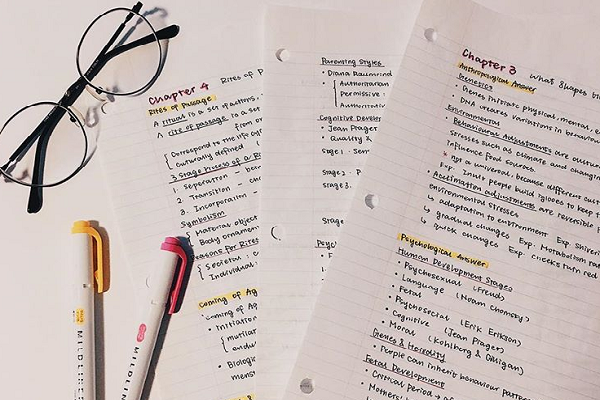 Chapter 4 Rites of P
Rites of Passage
A ritual is a set of actions
A rite of passage is a
from
Correspond to the life
Culturally defined
3 Stage Theory of a R
1. Seperation -
2. Transition -
3. Incorporation -
Symbolism
Material object
Body ornamen
Reasons For Rites
Societal:
Individual:
Coming of Ag
"Coming of
Initiation
mutilat
endur
Biologic
mens
Parenting Styles
Diana Baumrind
Authoritarian
Permissive:
Authoritativ
Cognitive Devel
Jean Prager
Quality
Stage 1: Sen
Stage 2: P
Stage 3:
Stage
Psyc
Chapter 3 What Shapes
Anthropological Answer
Genetics
Genes initiate physical, mental, e
DNA creates variations in behaviou
Environmental
Behavioural Adjustments are
stresses such as climate and changin
influence food sources.
not a universal, because different cult
Exp. Inuits people build igloos to keep
Acclimation adjustments are reversible
environmental stresses
adaptation to environment Exp. Shiveri
gradual changes Exp. Metabolism ra
quick changes Exp. cheeks turn red
Psychological Answer
Human Development Stages
Psychosexual (Freud)
Language (Noam Chomsky)
Fetal
Psychosocial (Erik Erikson)
Cognitive (Jean Prager)
Moral (Kohlberg & Gilligan)
Genes & Heredity
People can inherit behaviour patter
Fetal Development
Critical period →
Mothers'
MILDLINER
MILDLIN